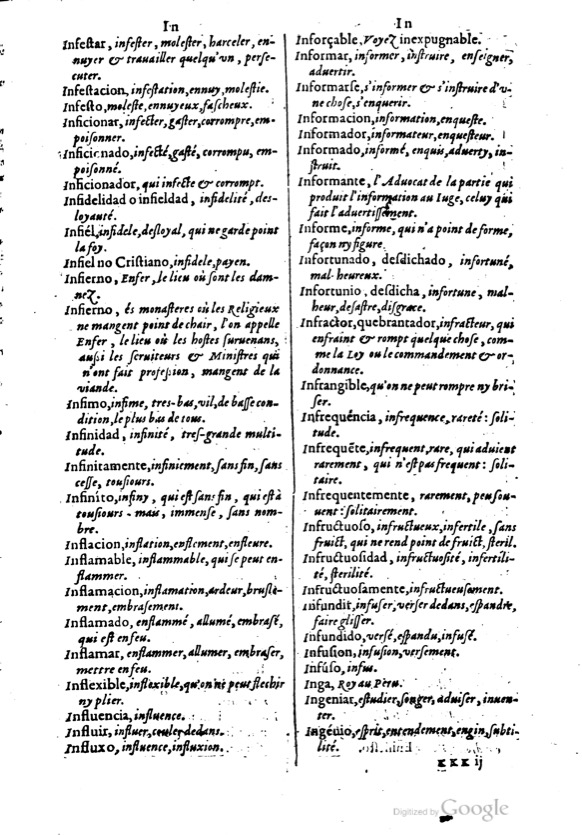 In
Infestar, infester, molester, harceler, en-
nuyer & trauailler quelqu'vn, perse-
cuter.
Infestacion, infestation, ennuy, molestie.
Infesto, moleste, ennuyeux, fascheux.
Inficionar, infecter, gaster, corrompre, em-
poisonner.
Inficionado, infecté, gasté, corrompu, em-
poisonné.
Inficionador, qui infecte & corrompt.
Infidelidad o infieldad, infidelité, des-
loyauté.
Infiel, infidele, desloyal, qui ne garde point
la foy.
Infiel no Cristiano, infidele, payen.
Infierno, Enfer, le lieu où sont les dam-
nez.
Infierno, és monasteres où les Religieux
ne mangent point de chair, l'on appelle
Enfer, le lieu où les hostes suruenans,
aussi les seruiteurs & Ministres qui
n'ont fait profession, mangent de la
viande.
Infimo, infime, tres-bas, vil, de basse con-
dition, le plus bas de tous.
Infinidad, infinité, tres-grande multi-
tude.
Infinitamente, infiniement, sans fin, sans
cesse, tousiours.
Infinito, infiny, qui est sans fin, qui est à
tousiours-mau, immense, sans nom-
bre.
Inflacion, inflation, enflement, enfleure.
Inflamable, inflammable, qui se peut en-
flammer.
Inflamacion, inflamation, ardeur, brusle-
ment, embrasement.
Inflamado, enflammé, allumé, embrasé,
qui est en feu.
Inflamar, enflammer, allumer, embraser,
mettre en feu.
Inflexible, inflexible, qu'on ne peut flechir
ny plier.
Influencia, influence.
Influir, influer, couler dedans.
Influxo, influence, influxion.
In
Inforçable, Voyez inexpugnable.
Informar, informer, instruire, enseigner,
aduertir.
Informarse, s'informer & s'instruire d'v-
ne chose, s'enquerir.
Informacion, information, enqueste.
Informador, informateur, enquesteur.
Informado, informé, enquis, aduerty, in-
struit.
Informante, l'Aduocat de la partie qui
produit l'information au Iuge, celuy qui
fait l'aduertissement.
Informe, informe, qui n'a point de forme,
façon ny figure.
Infortunado, desdichado, infortuné,
mal-heureux.
Infortunio, desdicha, infortune, mal-
heur, desastre, disgrace.
Infractor, quebrantador, infracteur, qui
enfraint & rompt quelque chose, com-
me la Loy ou le commandement & or-
donnance.
Infrangible, qu'on ne peut rompre ny bri-
ser.
Infrequéncia, infrequence, rareté: soli-
tude.
Infrequẽte, infrequent, rare, qui aduient
rarement, qui n'est pas frequent: soli-
taire.
Infrequentemente, rarement, peu sou-
uent: solitairement.
Infructuoso, infructueux, infertile, sans
fruict, qui ne rend point de fruict, steril.
Infructuosidad, infructuosité, infertili-
té, sterilité.
Infructuosamente, infructueusement.
Infundir, infuser, verser dedans, espandre,
faire glisser.
Infundido, versé, espandu, infusé.
Infusion, infusion, versement.
Infuso, infus.
Inga, Roy au Peru.
Ingeniar, estudier, songer, aduiser, inuen-
ter.
Ingenio, esprit, entendement, engin, subti-
lité.
xxx ij
Digitized by Google